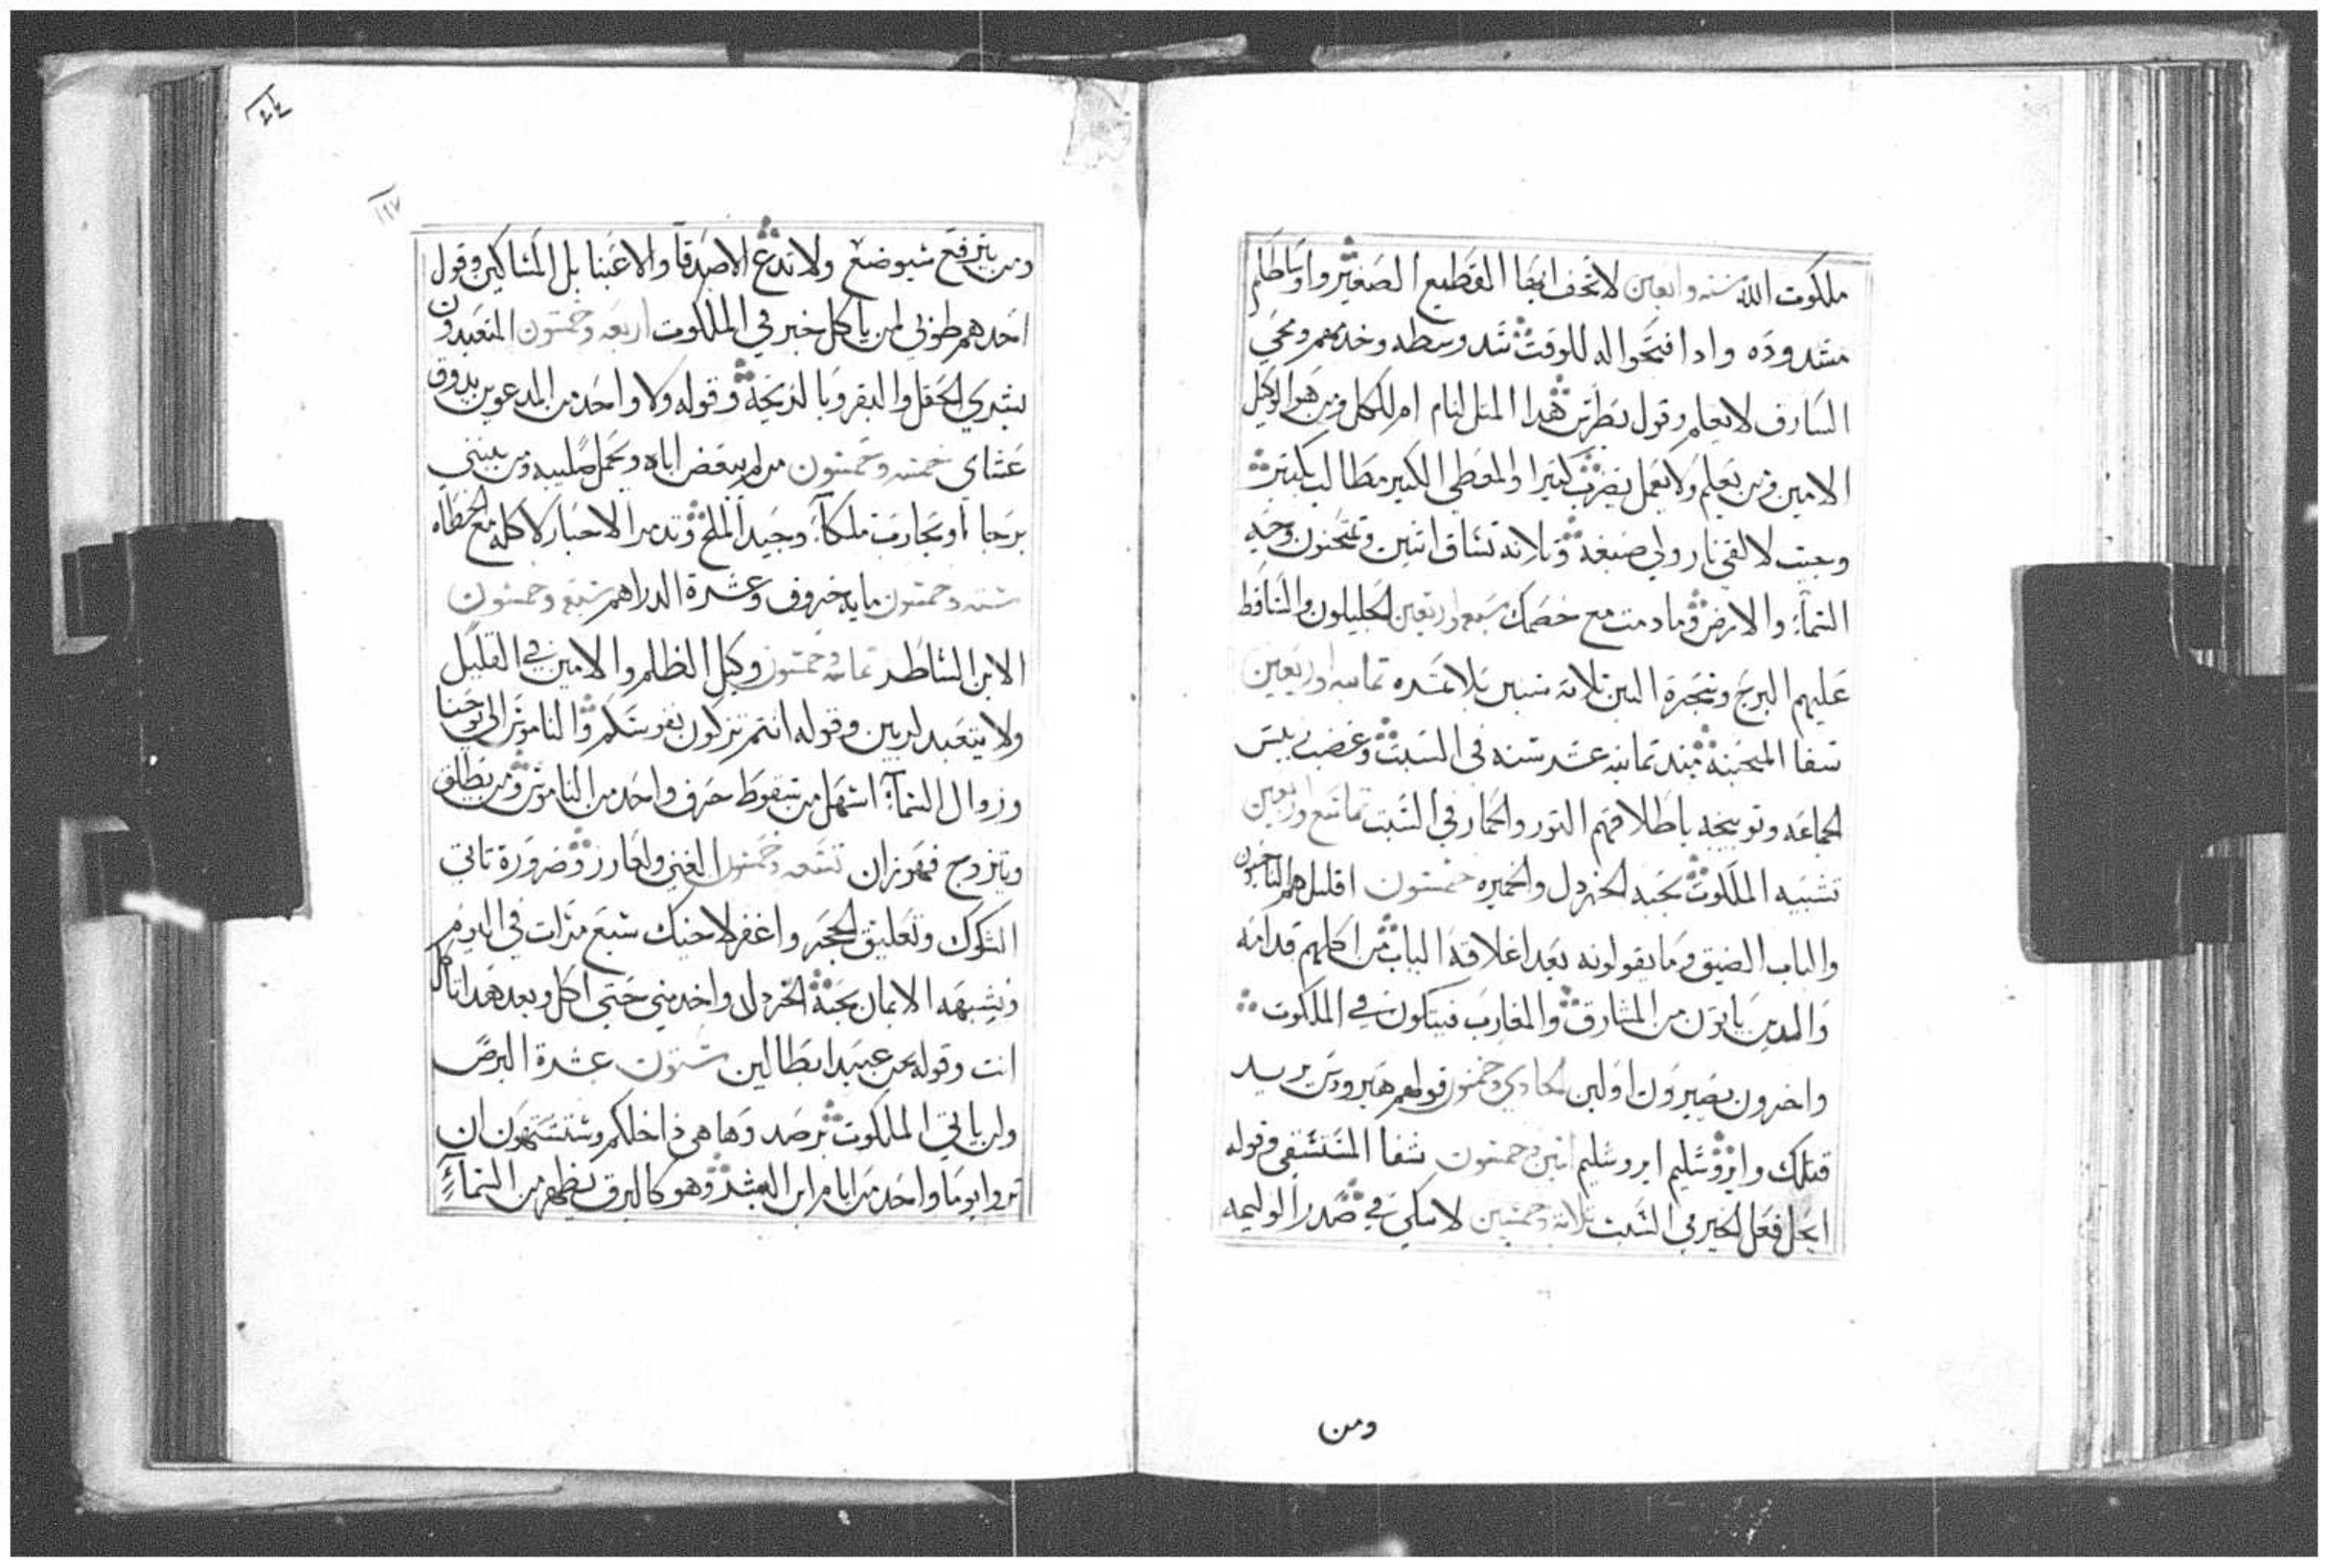 ملكوت الله سته واربعين لا تخف ايها القطيع الصغير واوساطكم
مشدوده وادا فتحوا له للوقت شد وسطه وخدمهم ومجي
السارق لا يعلم وقول بطرس هدا المتل لنام ام للكل ومن هو الوكيل
الامين ومن يعلم ولا يعمل يضرب كتيرا والمعطي الكتير مطالب بكتير
وجيت لالقي نار ولي صبغه وتلاته تشاق اتنين وتمتحنون وجه
السماء والارض وما دمت مع خصمك سبعه واربعين الجليليون والساقط
عليهم البرج وشجرة التين تلاتة سنين بلا تمره تمانيه واربعين
شفا المنحنيه مند تمانيه عشر سنه في السبت وغضب ريس
الجماعه وتوبيخه باطلاقهم التور والحمار في السبت تسع واربعين
تشبيه الملكوت بحبه الخردل والخميره خمسون اقليل هم الناجون
والباب الضيق وما يقولونه بعد اغلاقه الباب من اكلهم قدامه
والدين ياتون من المشارق والمغارب فيتكون في الملكوت
واخرون يصيرون اولين الحادي وخمسون قولهم هيرودس يريد
قتلك وايروشليم ايروشليم اتنين وخمسون شفا المستسقي وقوله
ايحل فعل الخير في السبت تلاتة وخمسين لا تتكي في صدر الوليمه
ومن
١٩٧
ومن يترفع سيوضع ولا تدع الاصدقا والاغنيا بل المساكين وقول
احدهم طوبي لمن ياكل خبز في الملكوت اربعه وخمسون المتعبدون
بشري الحقل والبقر وبالزيجة وقوله ولا واحد من المدعوين يدوق
عشاي خمسه وخمسون من لم يبغض اباه ويحمل صليبه ومن يبني
برجا او يحارب ملكا وجيد الملح وتدمر الاحبار لاكله مع الخطاه
سته وخمسون مايه خروف وعشرة الدراهم سبع وخمسون
الابن الشاطر تمانيه وخمسون وكيل الظلم والامين في القليل
ولا يتعبد لربين وقوله انتم تزكون نفوسكم والناموس الي يوحنا
وزوال السماء اسهل من سقوط حرف واحد من الناموس ومن يطلق
ويتزوج فهو زان تسعه وخمسون الغني ولعازر وضرورة تاتي
الشكوك وتعليق الحجر واغفر لاخيك سبع مرات في اليوم
وتشبيه الايمان بحبة الخردل واخدمني حتي اكل وبعد هدا تاكل
انت وقوله نحن عبيد ابطالين ستون عشرة البرص
ولن ياتي الملكوت برصد وها هي داخلكم وستشتهون ان
تروا يوما واحد من ايام ابن البشر وهو كالبرق يظهر من السماء